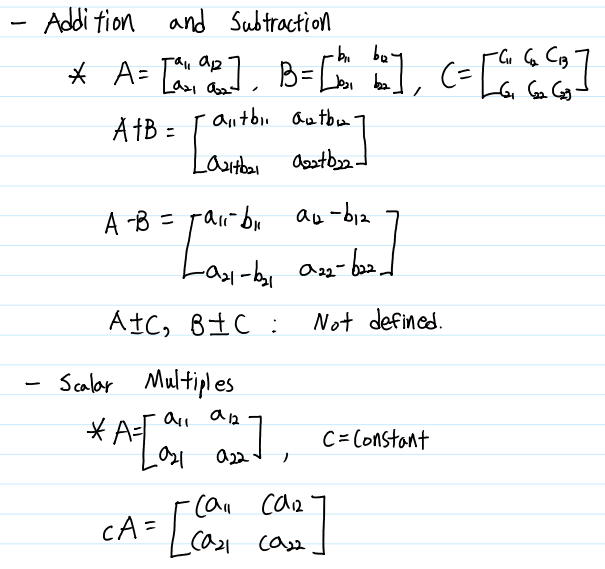 - Addition and Subtraction
* A = [a₁₁ a₁₂; a₂₁ a₂₂], B = [b₁₁ b₁₂; b₂₁ b₂₂], C = [C₁₁ C₁₂ C₁₃; C₂₁ C₂₂ C₂₃]
A+B = [a₁₁+b₁₁ a₁₂+b₁₂; a₂₁+b₂₁ a₂₂+b₂₂]
A-B = [a₁₁-b₁₁ a₁₂-b₁₂; a₂₁-b₂₁ a₂₂-b₂₂]
A±C, B±C : Not defined.
- Scalar Multiples
* A = [a₁₁ a₁₂; a₂₁ a₂₂], C = Constant
cA = [Ca₁₁ Ca₁₂; Ca₂₁ Ca₂₂]